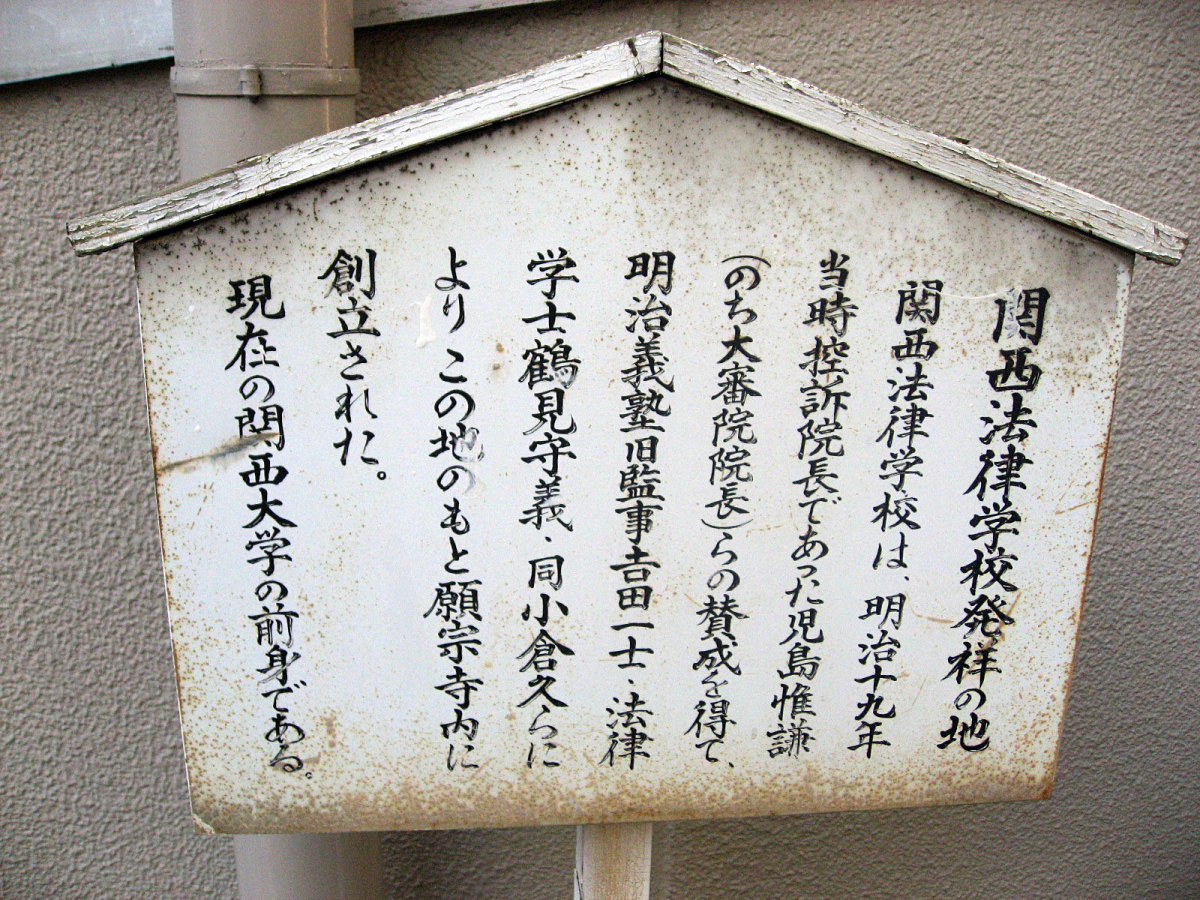 関西法律学校発祥の地
関西法律学校は、明治十九年
当時控訴院長であった児島惟謙
(のち大審院院長)らの賛成を得て、
明治義塾旧監事吉田一士・法律
学士鶴見守義・同小倉久らに
よりこの地のもと願宗寺内に
創立された。
現在の関西大学の前身である。